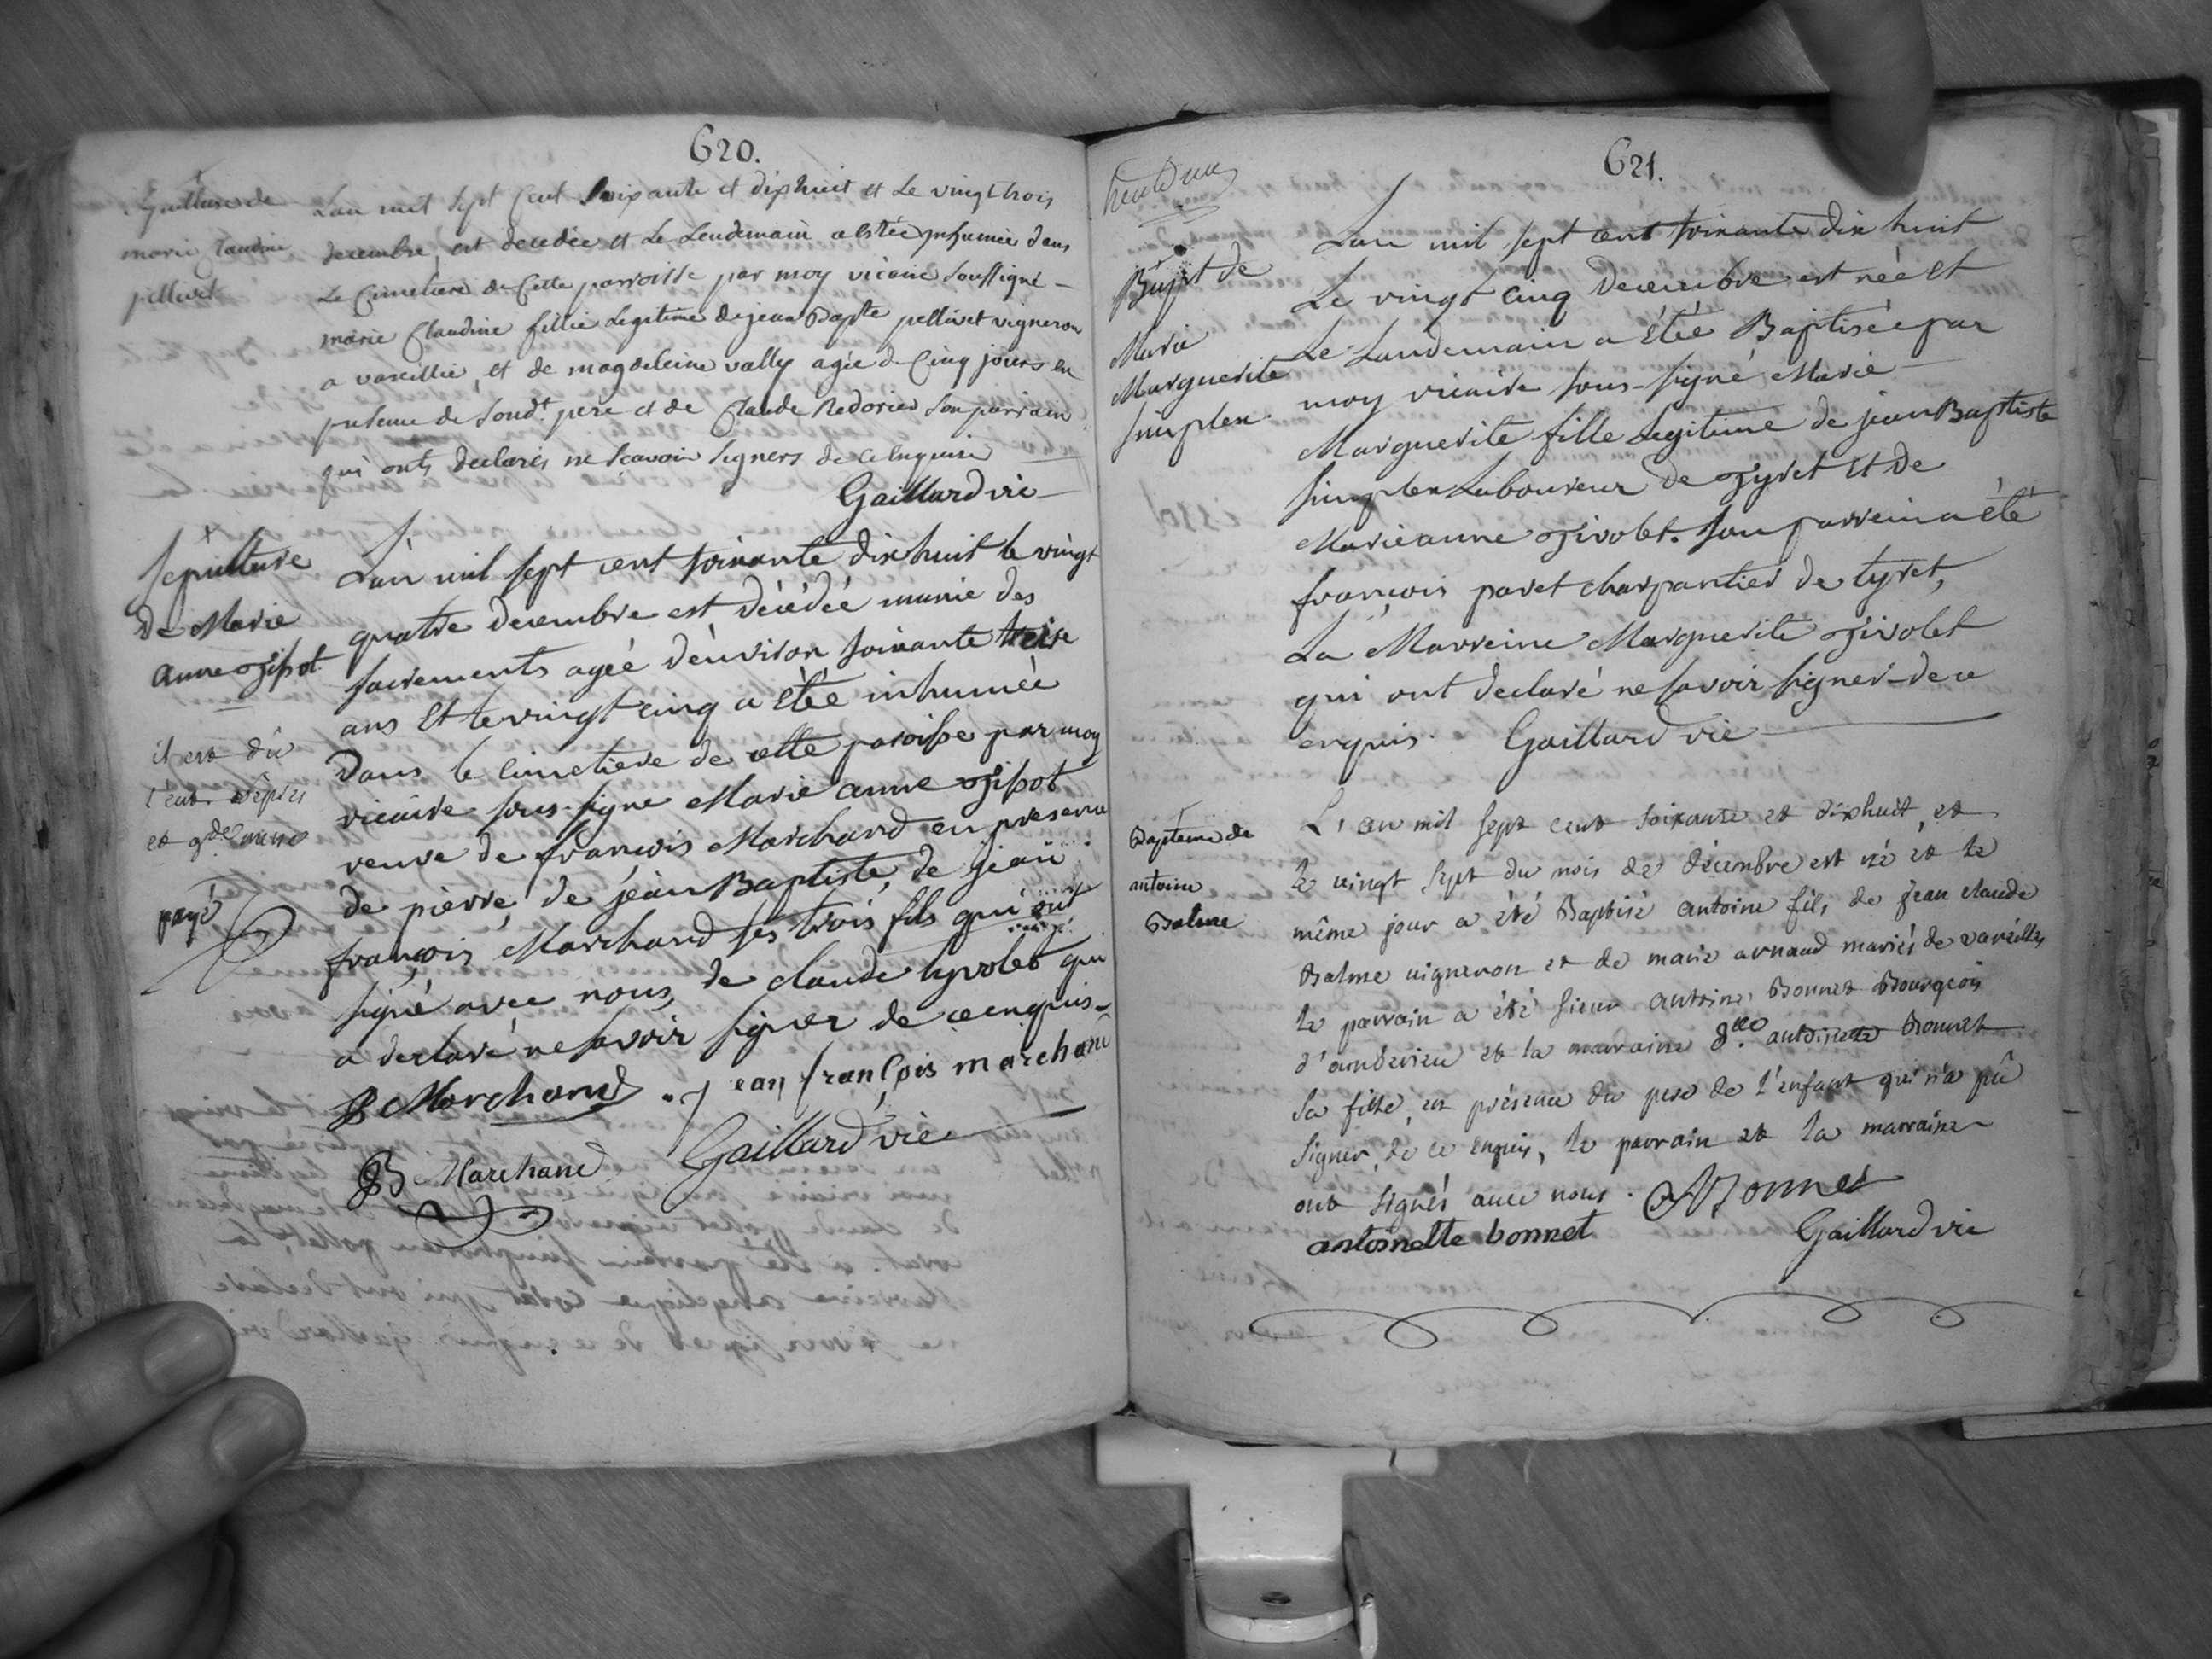 620.
Sepulture de
marie Claudine
pellivet
Lan mil sept Cent Soixante et dixhuit et Le vingt trois
decembre, est decedée et Le Lendemain a estée inhumée dans
Le Cimetiere de Cette parroisse par moy vicaire soussigné
marie Claudine fillie Legitime de jean Bapte pellivet vigneron
a vareillie, et de magdeleine vally agée de Cinq jours en
presence de Sondt pere et de Claude Redorier Son parrain
qui onts declarés ne scavoir signers de ce enquis
Gaillard vic
Sepulture
de Marie
anne
il est dû
et gde messe
payé
L'an mil sept cent soixante dix huit le vingt
quatre decembre est décédée munie des
sacrements agée d'environ soixante treize
ans Et le vingt cinq a étée inhumée
Dans le cimetiere de cette paroisse par moy
vicaire sous-signe Marie anne
veuve de françois Marchand en presence
de pierre, de jean Baptiste, de jean
françois Marchand ses trois fils qui ont
signé avec nous, de claude qui
a declaré ne savoir signer de ce enquis
Marchand jean françois marchand
B Marchand Gaillard vic
621.
Bapt de
Marie
Marguerite
Simplex
Lan mil sept cent soixante dix huit
Le vingt cinq Decembre est née et
Le Landemain a étée Baptisée par
moy vicaire sous-signé Marie
Marguerite fille Legitime de jean Baptiste
Simplex Laboureur de et de
Marie anne. Son parrein a été
françois paret charpantier de tyret,
La Marreine Marguerite
qui ont declaré ne savoir signer de ce
enquis. Gaillard vic
Baptême de
antoine
Balme
L'an mil sept cent soixante et dixhuit, et
le vingt sept du mois de décembre est né et le
même jour a été Baptisé antoine fils de jean claude
Balme vigneron et de marie arnaud mariés de vareilles
le parrain a été sieur antoine Bonnet Bourgeois
d'ambérieu et la marraine dlle antoinette Bonnet
sa fille, en présence du pere de l'enfant qui n'a pû
signer, de ce enquis, le parrain et la marraine
ont signés avec nous. Bonnet
antoinette bonnet Gaillard vic